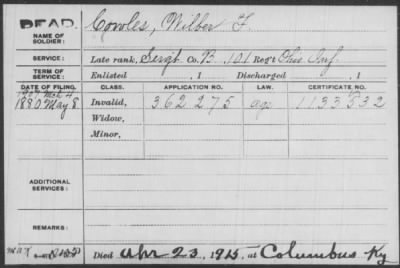 DEAD.
NAME OF SOLDIER: Cowles, Wilber F.
SERVICE: Late rank, Sergt. Co. B, 101 Reg't Ohio Inf.
TERM OF SERVICE: Enlisted , 1 Discharged , 1
DATE OF FILING. CLASS. APPLICATION NO. LAW. CERTIFICATE NO.
1907 Mch 4
1880 May 8 Invalid, 362 275 1133532
Widow,
Minor,
ADDITIONAL SERVICES:
REMARKS:
Died Apr 23, 1915, at Columbus Ky